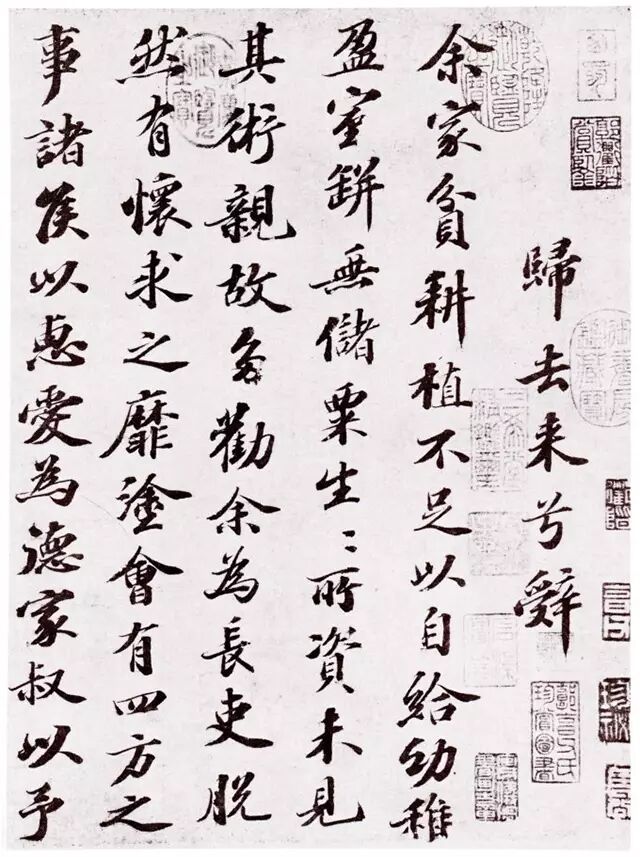 歸去来兮辤
余家貧耕植不足以自給幼稚
盈室缾無儲粟生〻所資未見
其術親故多勸余為長吏脫
然有懷求之靡塗會有四方之
事諸侯以惠愛為德家叔以予